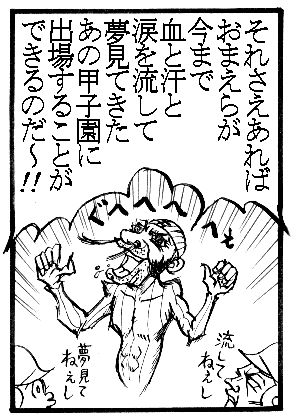 それさえあれば
おまえらが
今まで
血と汗と
涙を流して
夢見てきた
あの甲子園に
出場することが
できるのだ～!!
ぐへへへへも
流して
ねえし
夢見て
ねえし